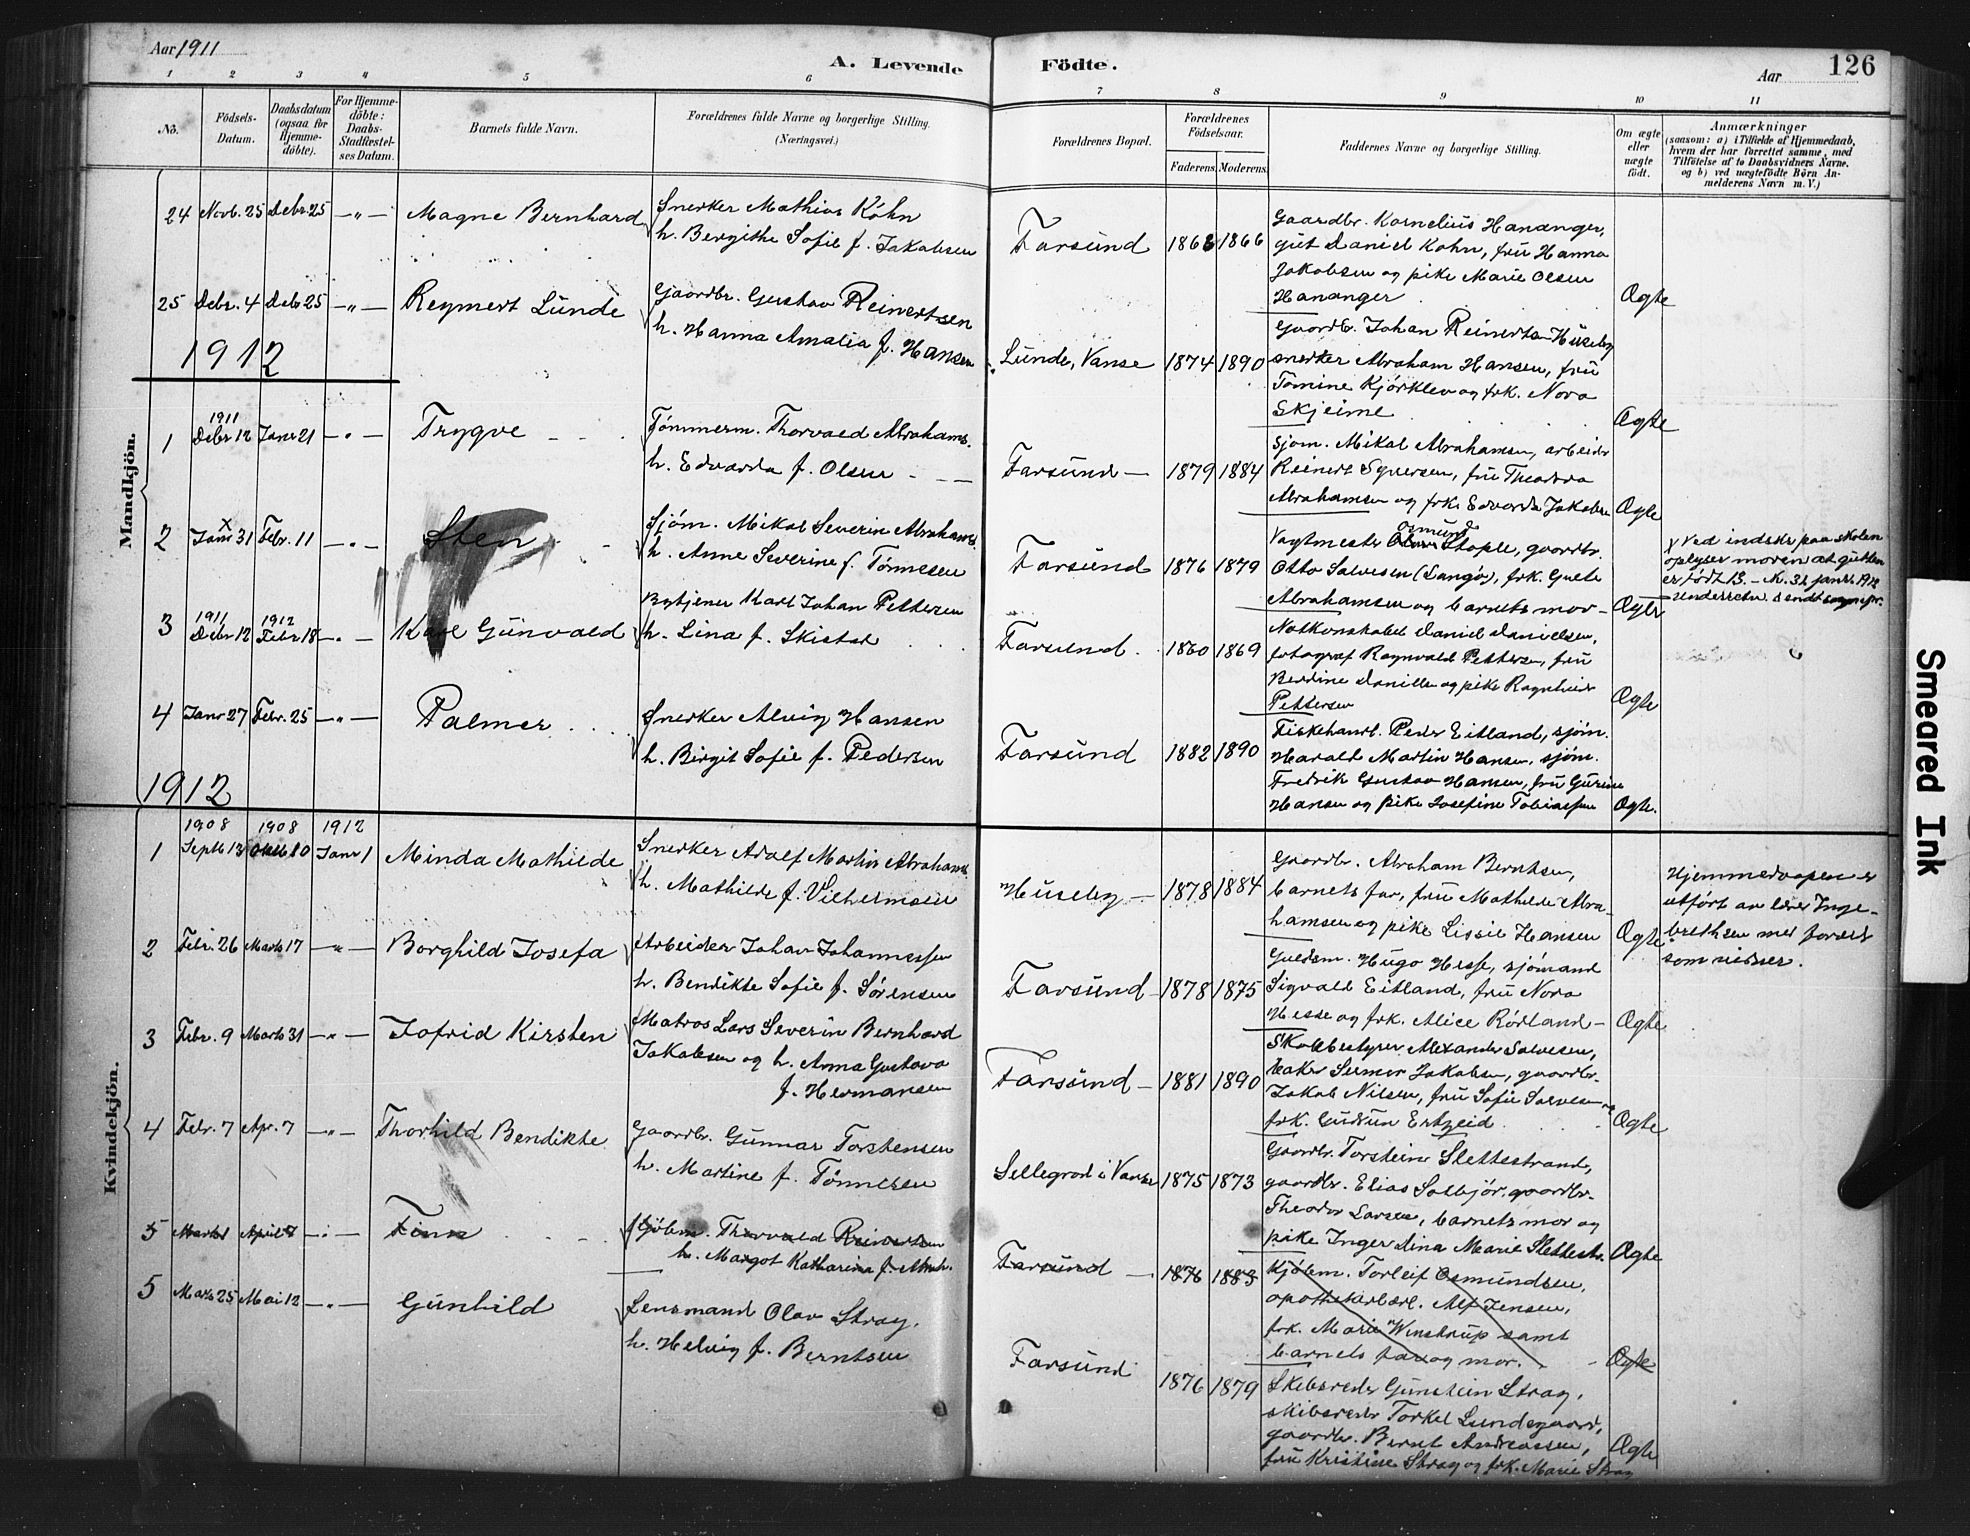 Aar 1911
A. Levende Födte.
Aar 126
1 2 3 4 5 6 7 8 9 10 11
No.
Födsels-Datum.
Daabsdatum (ogsaa for Hjemme-döbte).
For Hjemme-döbte: Daabs-Stadfæstel-ses Datum.
Barnets fulde Navn.
Forældrenes fulde Navne og borgerlige Stilling.
(Næringsvei.)
Forældrenes Bopæl.
Forældrenes Födselsaar.
Faderens. Moderens.
Faddernes Navne og borgerlige Stilling.
Om ægte eller uægte födt.
Anmærkninger
(saasom: a) i Tilfælde af Hjemmedaab,
hvem der har forrettet samme, med
Tilföielse af to Daabsvidners Navne.
og b) ved uægtefödte Börn An-
melderens Navn m. V.)
24 Novb. 25 Debr. 25 -"- Magne Bernhard
Snerker Mathias Köhn
h. Bergithe Sofie f. Jakobsen
Farsund 1868 1866
Gaardbr. Kornelius Hananger,
gut Daniel Kohn, fru Hanna
Jakobsen og pike Marie Olsen
Hananger
Ægte
25 Debr. 4 Debr 25 -"- Reymert Lunde
Gaardbr. Gustav Reinertsen
h. Hanna Amalia f. Hansen
Lunde, Vanse 1874 1890
Gaardbr. Johan Reinertsen Huseby
snerker Abraham Hansen, fru
Tomine Kjörklev og frk. Nora
Skjeime
Ægte
1912
Mandkjön.
1 1911 Debr 12 Janr 21 -"- Trygve
Tömmerm. Thorvald Abrahams.
h. Edvarda f. Olsen
Farsund 1879 1884
Sjöm. Mikal Abrahamsen, arbeider
Reinert Syversen, fru Theodora
Abrahamsen og frk. Edvarda Jakobsen
Ægte
2 Janr x 31 Febr. 11 -"- Sten
Sjöm. Mikal Severin Abrahams.
h. Anne Severine f. Tönnesen
Farsund 1876 1879
Vagtmester Osmund Stople, gaardbr.
Otto Salvesen (Langö), frk. Grete
Abrahamsen og barnets mor
Ægte
x Ved indskr paa skolen
oplyser moren at gutten
er födt 13. - M. 31 janr. 1912
3 1911 Debr 12 1912 Febr 18 -"- Karl Gunvald
Bytjener Karl Johan Pettersen
h. Lina f. Skistad
Farsund. 1860 1869
Notkonstabel Daniel Danielsen,
fotograf Ragnvald Pettersen, fru
Berdine Daniels og pike Ragnhild
Pettersen
Ægte
4 Janr 27 Febr. 25 -"- Palmer
Snerker Alvig Hansen
h. Birgit Sofie f. Pedersen
Farsund 1882 1890
Fiskehandl. Peder Eitland, sjöm.
Harald Martin Hansen, sjöm.
Fredrik Gustav Hansen, fru Gurine
Hansen og pike Josefine Tobiassen
Ægte.
1912
Kvindekjön.
1 1908 Septb 13 1908 Oktb 10 1912 Janr 1 Minda Mathilde
Snerker Adolf Martin Abrahams.
h. Mathilde f. Vilhelmsen
Huseby 1878 1884
Gaardbr. Abraham Berntsen,
barnets far, fru Mathilde Abra-
hamsen og pike Lissie Hansen
Ægte
Hjemmedaapen er
utfört av lærer Inge-
brethsen med foreld
som vidner.
2 Febr. 26 Marts 17 -"- Borghild Josefa
Arbeider Johan Johannessen
h. Bendikte Sofie f. Sörensen
Farsund 1878 1875
Guldsm. Hugo Hesse, sjömand
Sigvald Eitland, fru Nora
Hesse og frk. Alice Rödland
Ægte
3 Febr. 9 Marts 31 -"- Jofrid Kirsten
Matros Lars Severin Bernhard
Jakobsen og h. Anna Gustava
f. Hermansen
Farsund 1881 1890
Skolebestyrer Alexander Salvesen,
baker Selmer Jakobsen, gaardbr.
Jakob Nilsen, fru Sofie Salvesen og
frk. Gudrun Ertzeid
Ægte
4 Febr. 7 Apr. 7 -"- Thorhild Bendikte
Gaardbr. Gunnar Torstensen
h. Martine f. Tönnesen
Sellegrod i Vanse 1875 1873
Gaardbr. Torstein Slettestrand,
gaardbr. Elias Solbjör, gaardbr.
Theodor Larsen, barnets mor og
pike Inger Dina Marie Slettestr.
Ægte
5 April 8 Finn
Kjöbm. Thorvald Reinertsen
h. Margot Katharina f. Abrah.
Farsund 1876 1883
Kjöbm. Torleif Osmundsen,
apothekerlærl. Alf Jensen,
frk. Marie Winstrup samt
barnets far og mor.
Ægte
5 Marts 25 Mai 12 -"- Gunhild
Lensmand Olav Stray.
h. Helvig f. Berntsen
Farsund 1876 1879
Skibsreder Gunstein Stray,
skibsreder Torkel Lundegaard,
gaardbr. Bernt Andreassen,
fru Kristine Stray og frk. Marie Stray
Ægte
Smeared Ink